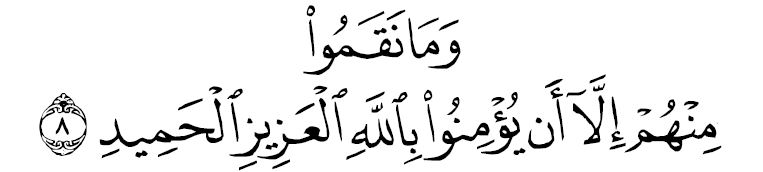 وَمَا نَقَمُوا۟
مِنْهُمْ إِلَّآ أَن يُؤْمِنُوا۟ بِٱللَّهِ ٱلْعَزِيزِ ٱلْحَمِيدِ ٨